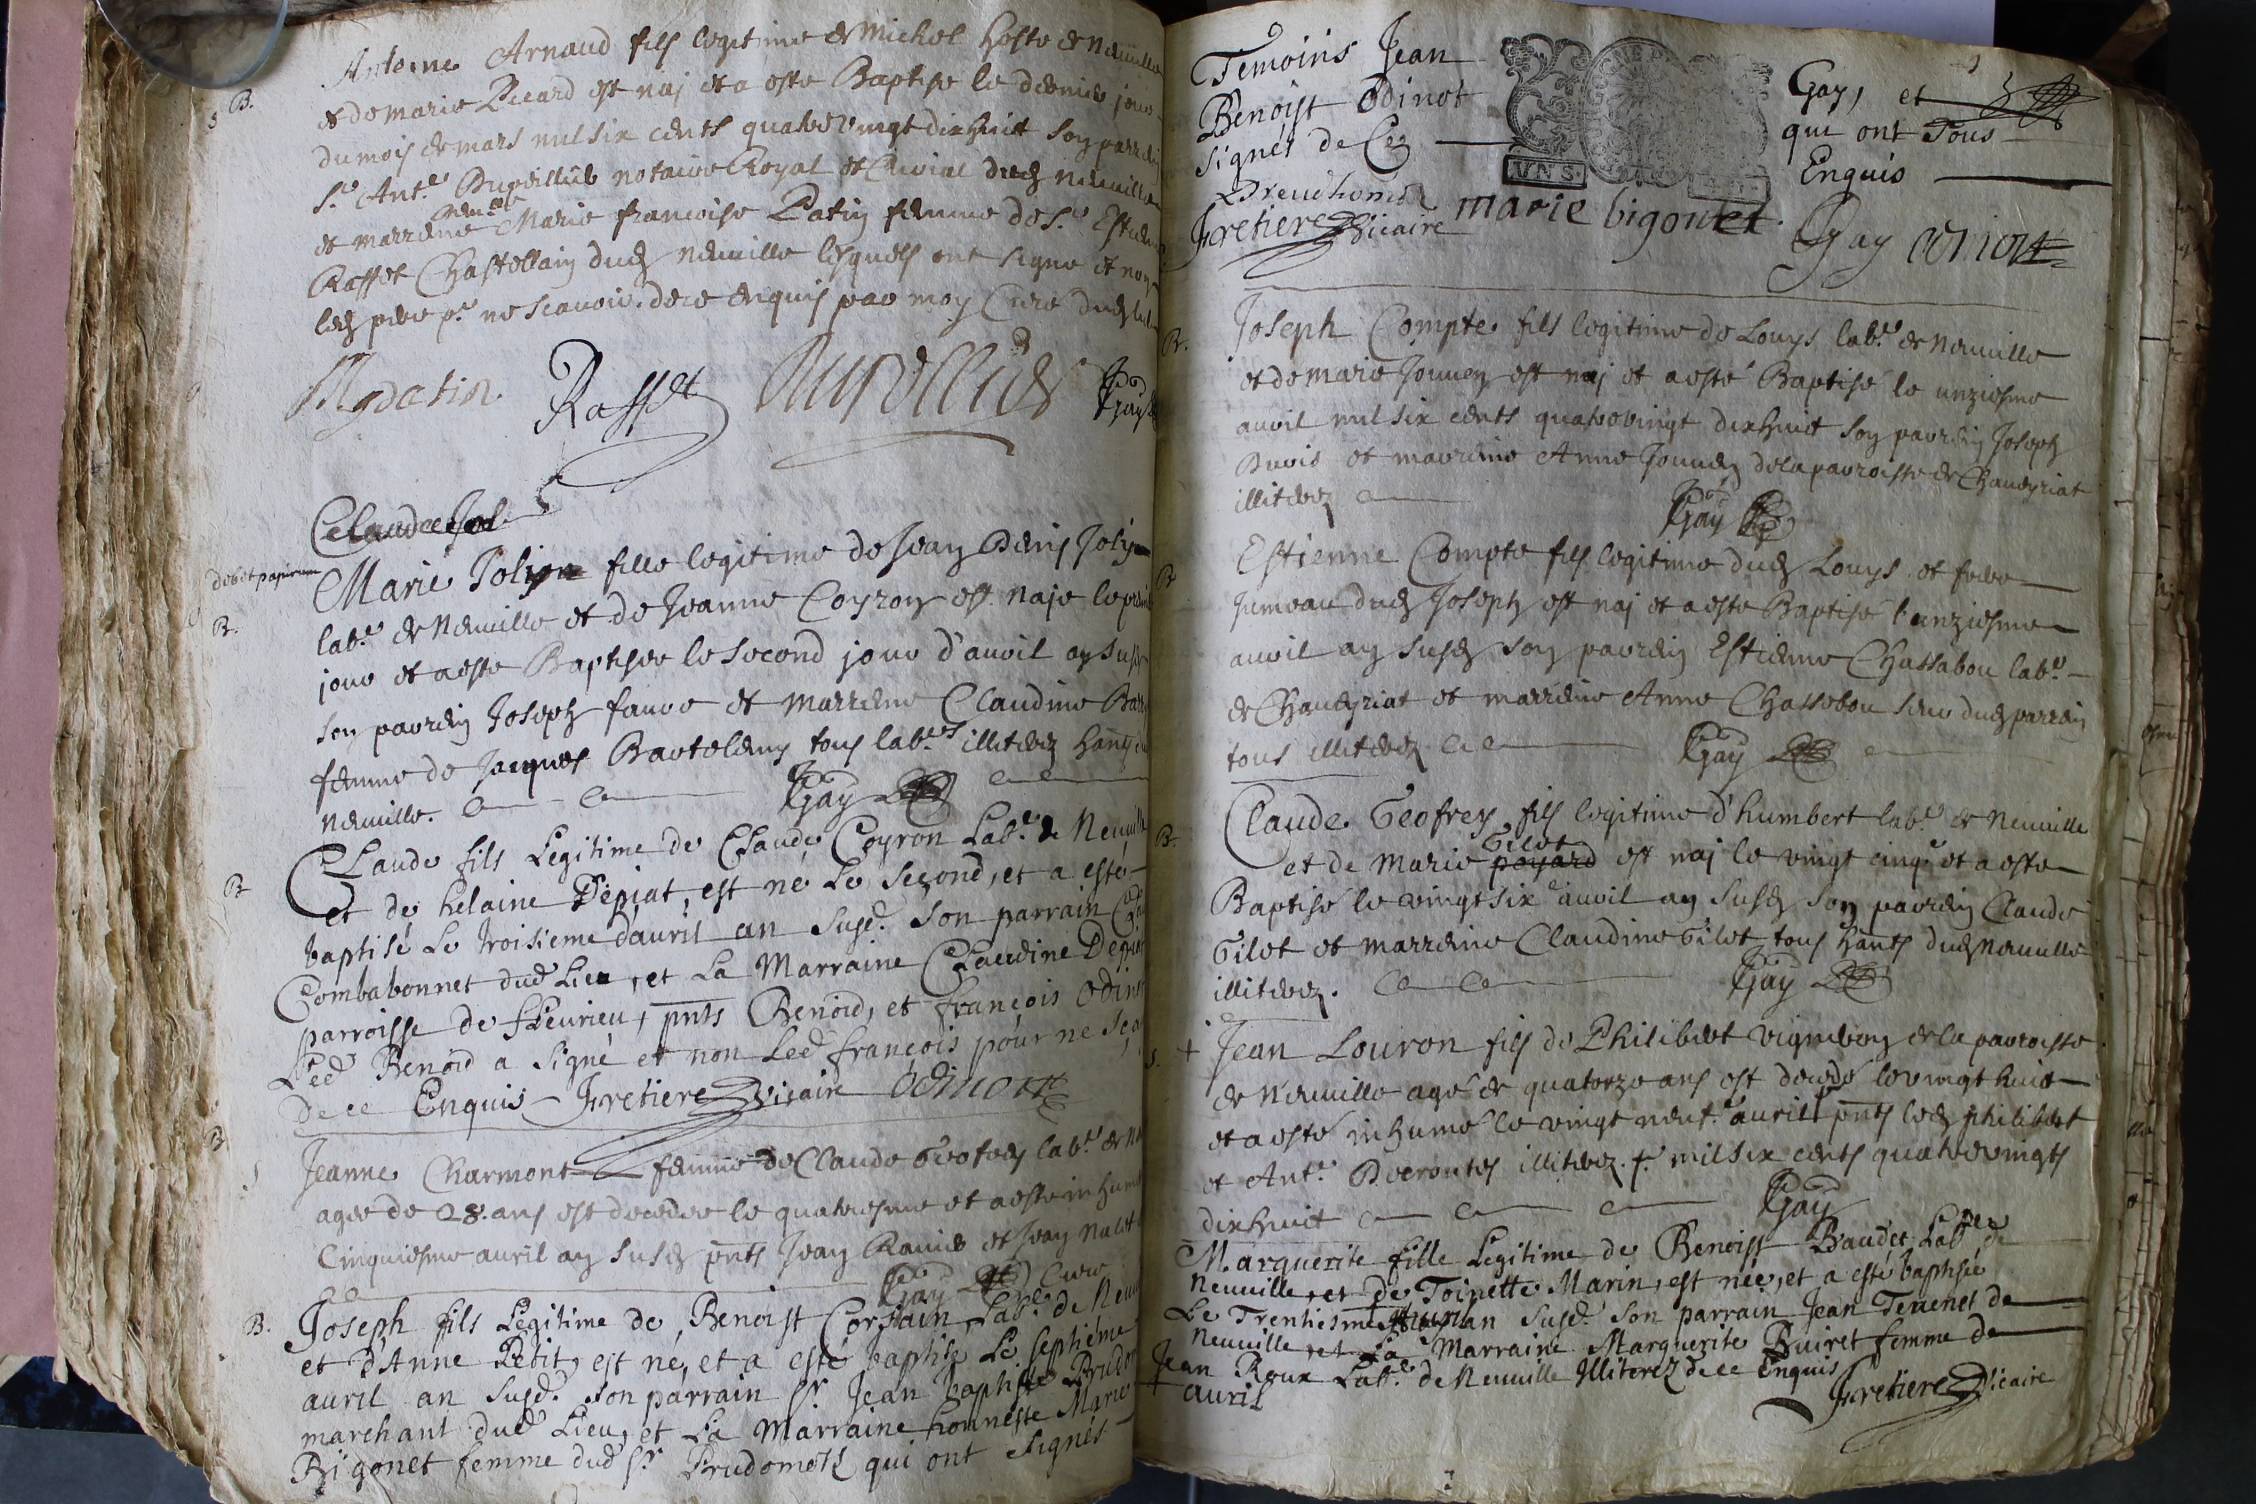 Antoine Arnaud fils legitime de Michel hoste de Neuville
B.
et de marie Picard est naj et a esté Baptisé le dernier jour
du mois de mars mil six cents quatrevingt dixhuict son parrein
Sr. Ant.e notaire Royal et dud neuville
et marreine Marie francoise Patin femme de Sr. Estienne
Rasset Chastellain dud neuville lesquels ont signé et non
led pere pr. ne scavoir de ce enquis par moy Curé dud lieu
Rasset
Gay
Claude Jol
debet papirum
Marie Joly fille legitime de Jean Denis Joly
B.
lab.r de Neuville et de Jeanne Coyron est naje le premier
jour et a esté Baptisee le second jour d'avril an susd
son parrein Joseph faure et marreine Claudine
femme de Jacques Bartelemy tous lab.rs illiterez hants dud
neuville.
Gay
B
Claude fils Legitime de Claude Coyron Lab.r de Neuville
et de helaine Depiat, est né Le second, et a esté
baptisé Le troisieme d'auril an susd. Son parrain
Combabonnet dud Lieu, et La Marraine Claudine
parroisse de fleurieu, pnts Benoid, et françois Odinot
Led Benoid a Signé et non Led françois pour ne sça
de ce Enquis Fretiere Vicaire Odinot
B
Jeanne Charmont femme de Claude Geofrey lab.r de
agee de 28. ans est decedee le quatriesme et a esté inhumee
Cinquiesme avril an susd pnts Jean et Jean
Gay Curé
B.
Joseph fils Legitime de Benoist Corsain Lab.r de Neuville
et d'Anne Petit, est né, et a esté baptisé Le septième
auril an susd. Son parrain Sr. Jean baptiste Prudom
marchant dud Lieu, et La Marraine honneste Marie
Bigonet femme dud Sr. qui ont Signés
Temoins Jean Gay, et
Benoist Odinot qui ont Tous
Signés de Ce Enquis
Fretiere Vicaire marie bigonet Gay odinot
VNS.
B.
Joseph Compte fils legitime de Louys lab.r de Neuville
et de marie Jouuen est naj et a esté Baptisé le unziesme
avril mil six cents quatrevingt dixhuict son parrein Joseph
et marreine Anne Jouuen de la parroisse de Chaneyriat
illiterez
Gay
B
Estienne Compte fils legitime dud Louys et frere
Jumeau dud Joseph est naj et a esté Baptisé l'unziesme
avril an susd son parrein Estienne Chassabou lab.r
de Chaneyriat et marreine Anne Chassebou seur dud parrein
tous illiterez
Gay
B.
Claude Geofrey fils legitime d'humbert lab.r de Neuville
et de Marie poyard Gilet est naj le vingt cinq.e et a esté
Baptisé le vingt six.e avril an susd son parrein Claude
Gilet et marreine Claudine Gilet tous hants dud Neuville
illiterez.
Gay
S. + Jean Louron fils de Philibert vigneron de la parroisse
de Neuville agé de quatorze ans est decedé le vingt huict
et a esté inhumé le vingt neuf.e auril + pnts led philibert
et Ant.e illiterez. +. mil six cents quatrevingts
dixhuict
Gay
Marguerite fille Legitime de Benoist Baudet Lab.r de
Neuville, et de Toinette Marin, est née, et a esté baptisée
Le Trentiesme an susd. Son parrain Jean Tenenet de
Neuville et La Marraine Marguerite Buiret femme de
Jean Roux Lab.r de Neuville Illiterez de ce Enquis
+ auril
Fretiere Vicaire